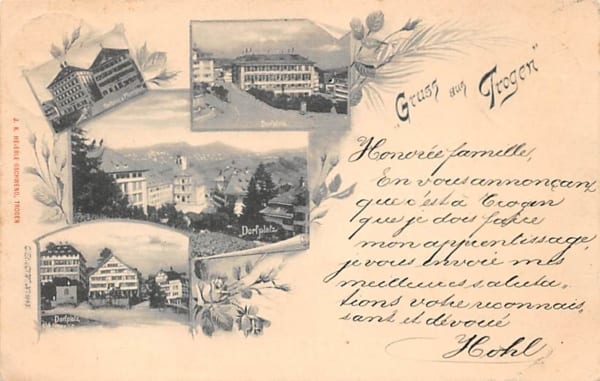 "Gruss aus Trogen"
Dorfplatz
Dorfplatz
Dorfplatz
J. K. HEIERLE-GSCHWEND, TROGEN
Honorée famelle,
En vous annonçant
que c'est à Trogen
que je dois faire
mon apprentissage,
je vous envoie mes
meilleures saluta-
tions votre reconnais-
sant et dévoué
Hohl